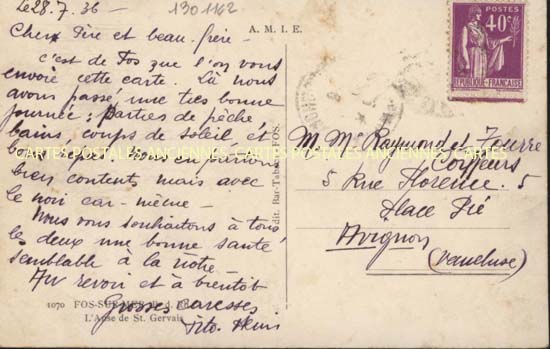 Le 28.7.36 - 1301162
Cher Pire et beau-frère -
c'est de Fos que l'on vous
envoie cette carte. Là nous
avons passé une très bonne
journée : parties de pêche,
bains, coups de soleil et
nous en partons
bien contents mais avec
le noir car-même -
Nous vous souhaitons à tous
les deux une bonne santé
semblable à la nôtre -
Au revoir et à bientôt
Grosses caresses
Tito-Henri
1070 FOS-SUR-MER
L'Anse de St. Gervais
A. M. I. E.
Edit. Bar-Tabacs, FOS.
POSTES
40c
REPUBLIQUE-FRANÇAISE
M. Me Raymond et
Coiffeurs
5 Rue Florence. 5
Place Pié
Avignon
(Vaucluse)
CARTES POSTALES ANCIENNES
CARTES POSTALES ANCIENNES
CARTES POSTALES ANCIENNES